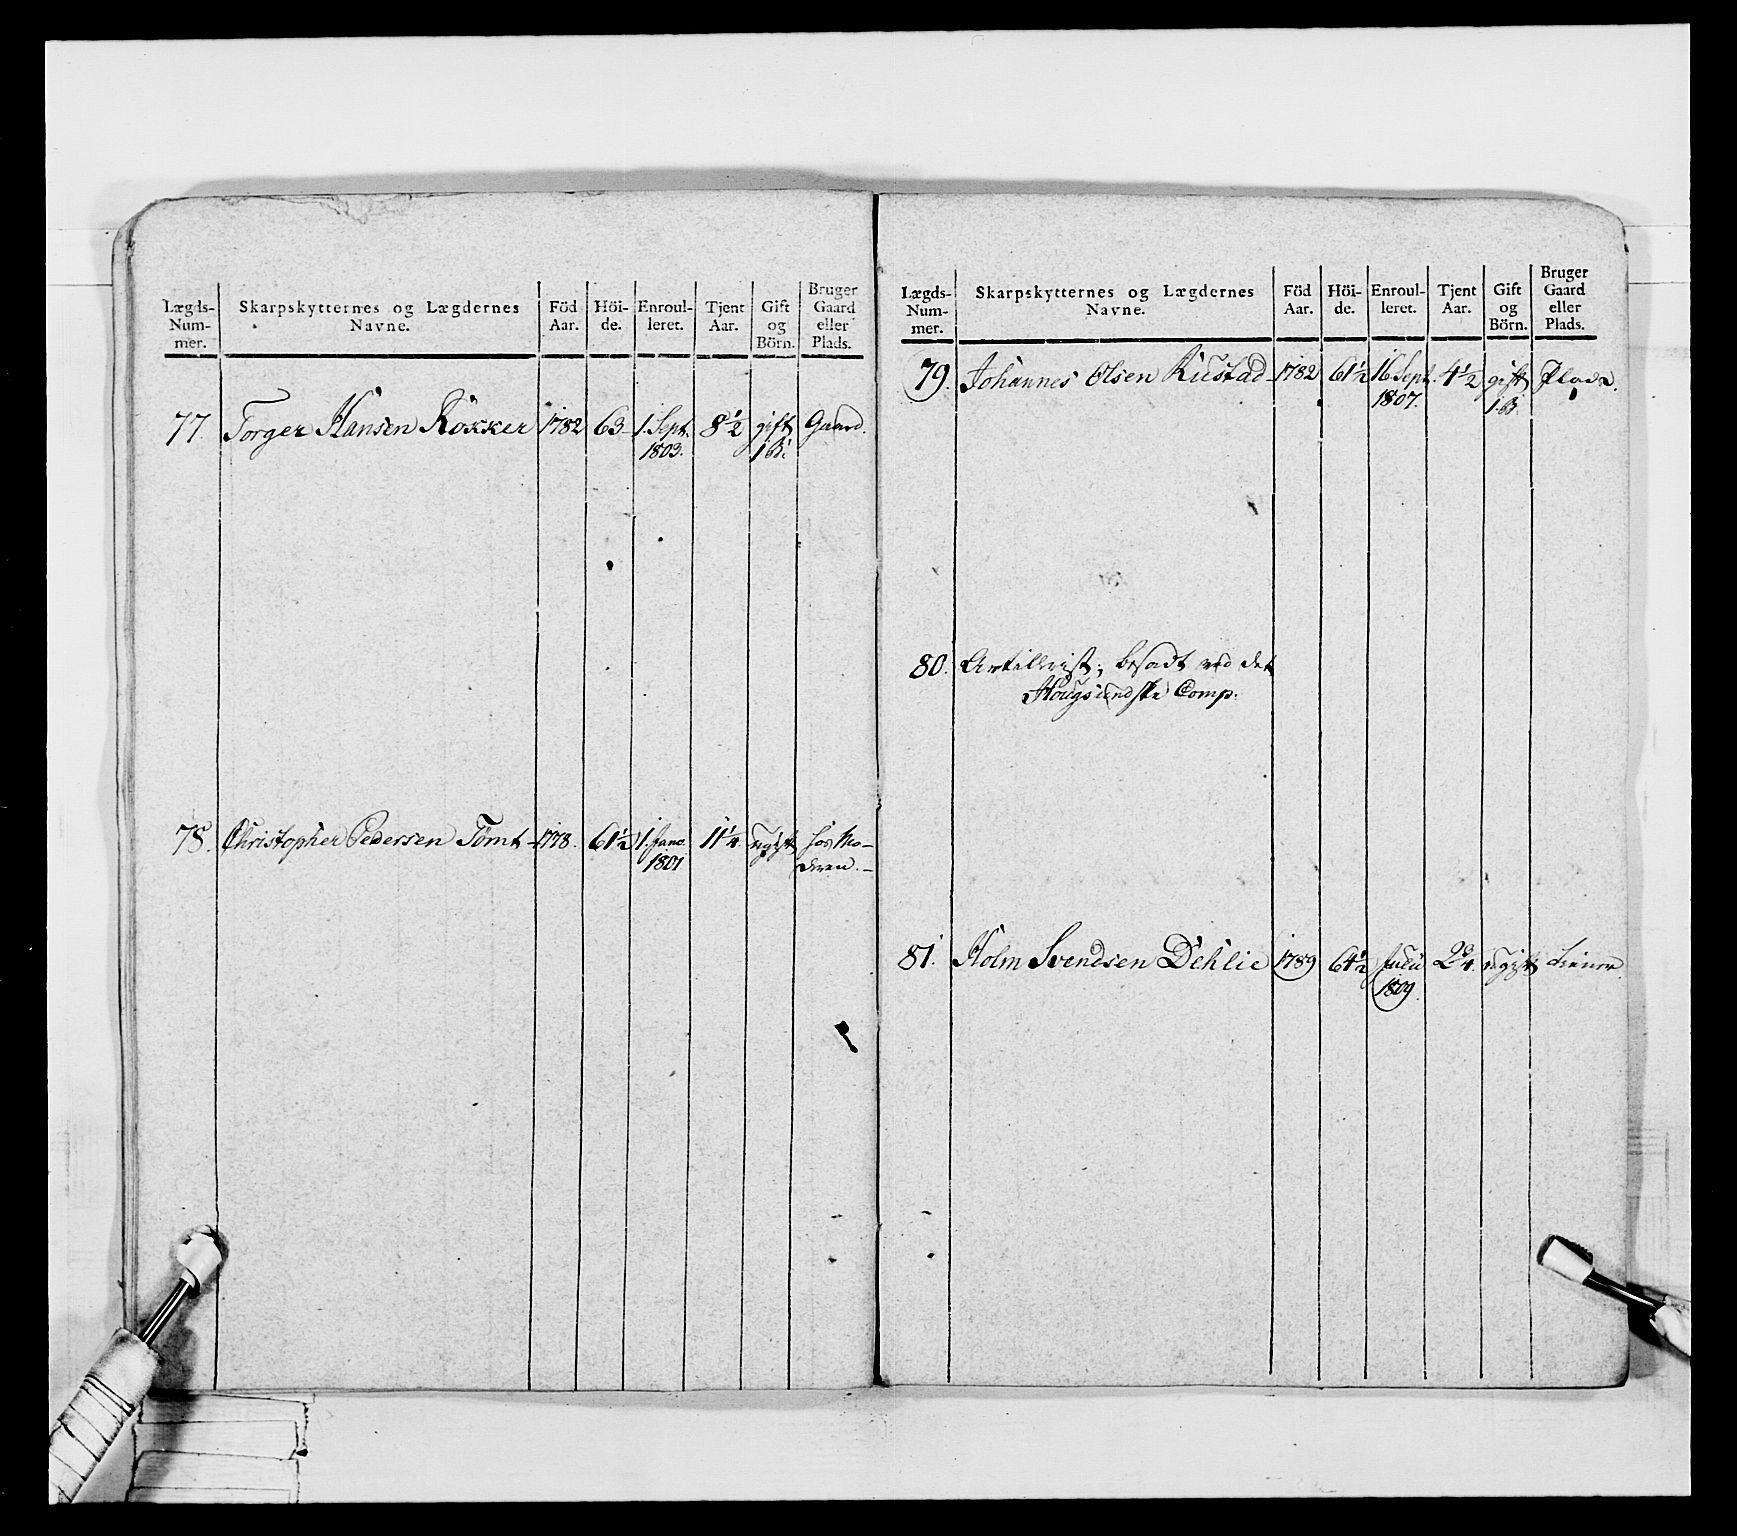 Lægds-
Num-
mer.
Skarpskytternes og Lægdernes
Navne.
Föd
Aar.
Höi-
de.
Enroul-
leret.
Tjent
Aar.
Gift
og
Börn.
Bruger
Gaard
eller
Plads.
77. Torger Hansen Rökker 1782 63 1. Sept. 8½ gift Gaard.
1803. 1 B:
78. Christopher Pedersen Tömt 1778. 61½ 1. Janv. 11¼. ugift hos Mo-
1801 deren.
Lægds-
Num-
mer.
Skarpskytternes og Lægdernes
Navne.
Föd
Aar.
Höi-
de.
Enroul-
leret.
Tjent
Aar.
Gift
og
Börn.
Bruger
Gaard
eller
Plads.
79. Johannes Olsen Rustad 1782 61½ 16 Sept. 4½ gift Plads.
1807. 1. B.
80. Artillerist; besadt ved det
Comp:
81. Holm Svendsen Dehlie 1789 64½ 2¾. ugift tiener
1809.